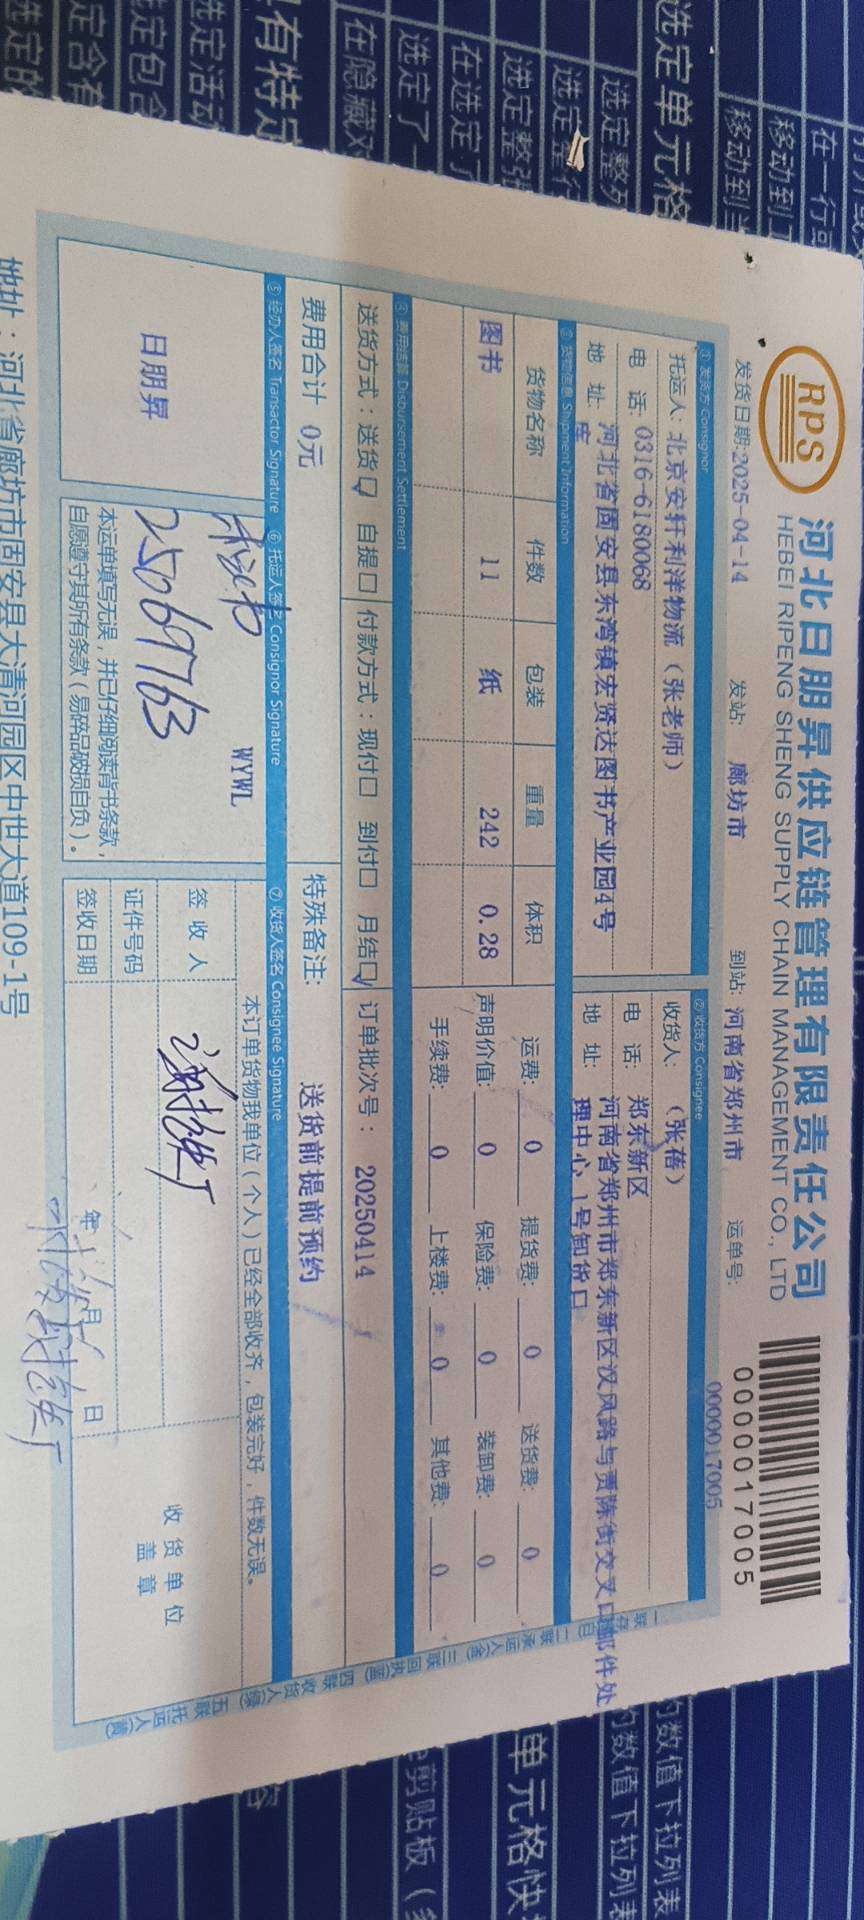 RPS
河北日朋昇供应链管理有限责任公司
HEBEI RIPENG SHENG SUPPLY CHAIN MANAGEMENT CO., LTD
0000017005
发货日期:2025-04-14 发站: 廊坊市 到站: 河南省郑州市 运单号: 0000017005
①发货方 Consignor
托运人: 北京安轩利洋物流（张老师）
电 话: 0316-6180068
地 址: 河北省固安县东湾镇宏贤达图书产业园4号库
②收货方 Consignee
收货人: （张蓓）
电 话: 郑东新区
地 址: 河南省郑州市郑东新区汉风路与贾陈街交叉口邮件处理中心 1号卸货口
③ 货物信息 Shipment Information
货物名称 件数 包装 重量 体积
图书 11 纸 242 0.28
运费: 0 提货费: 0 送货费: 0
声明价值: 0 保险费: 0 装卸费: 0
手续费: 0 上楼费: 0 其他费: 0
④ 费用结算 Disbursement Settlement
送货方式：送货☑ 自提□ 付款方式：现付□ 到付□ 月结☑ 订单批次号： 20250414
费用合计 0元 特殊备注: 送货前提前预约
⑤ 经办人签名 Transactor Signature ⑥ 托运人签名 Consignor Signature ⑦ 收货人签名 Consignee Signature
日朋昇
WYWL
25069763
本运单填写无误，并已仔细阅读背书条款，
自愿遵守其所有条款（易碎品破损自负）。
本订单货物我单位（个人）已经全部收齐，包装完好，件数无误。
签 收 人
证件号码
签收日期 年 月 日
收 货 单 位
盖 章
地址：河北省廊坊市固安县大清河园区中世大道109-1号
选定单元格
选定整列
在一行或
移动到
在选定了
选定了一
在隐藏对
选定活动
选定包含
单元格快
的数值下拉列表